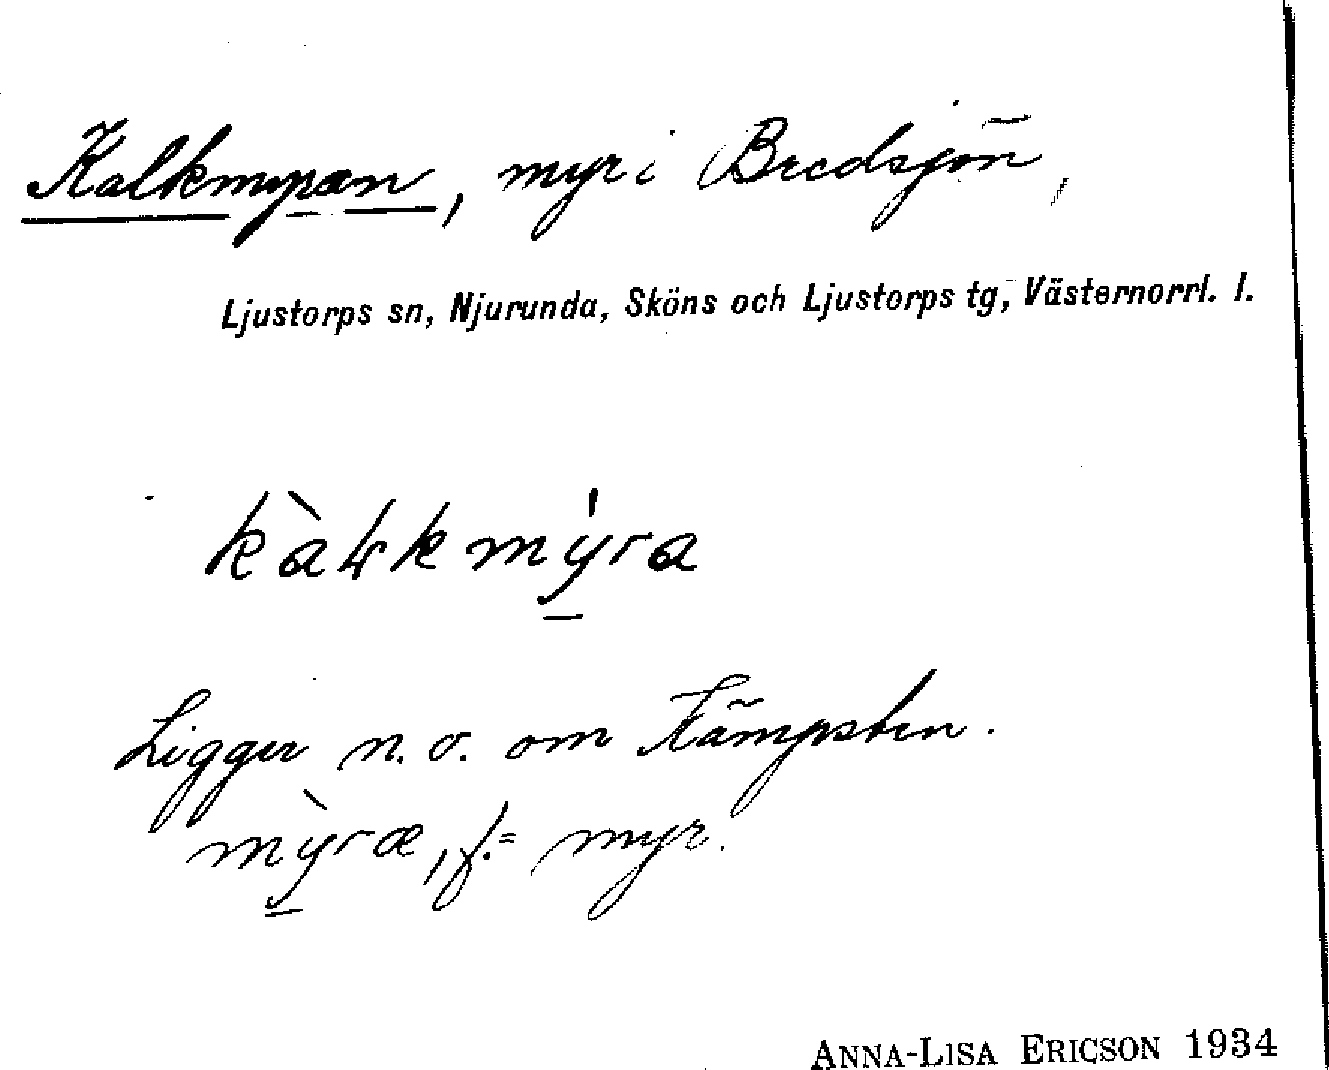 Kalkmyran, myr i Bredsjön,
Ljustorps sn, Njurunda, Sköns och Ljustorps tg, Västernorrl. l.
kàłkmy̱̍ra
Ligger n. o. om Kämpsten.
mỳ̱ræ, f. = myr.
ANNA-LISA ERICSON 1934